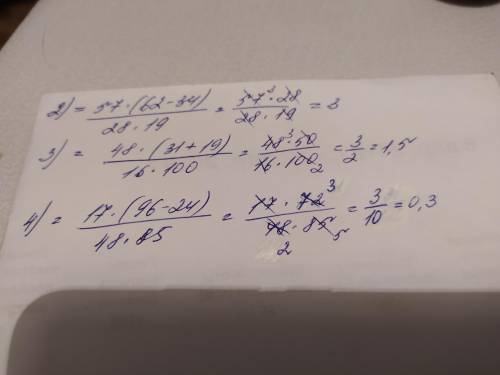 2) = 57·(62-34)/28·19 = 57³·28/28·19 = 3
3) = 48·(31+19)/16·100 = 48³·50/16·100₂ = 3/2 = 1,5
4) = 17·(96-24)/48·85 = 17·72³/48₂·85₅ = 3/10 = 0,3